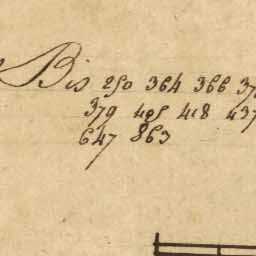 Bis 250 364 366 37
379 405 418 437
647 863